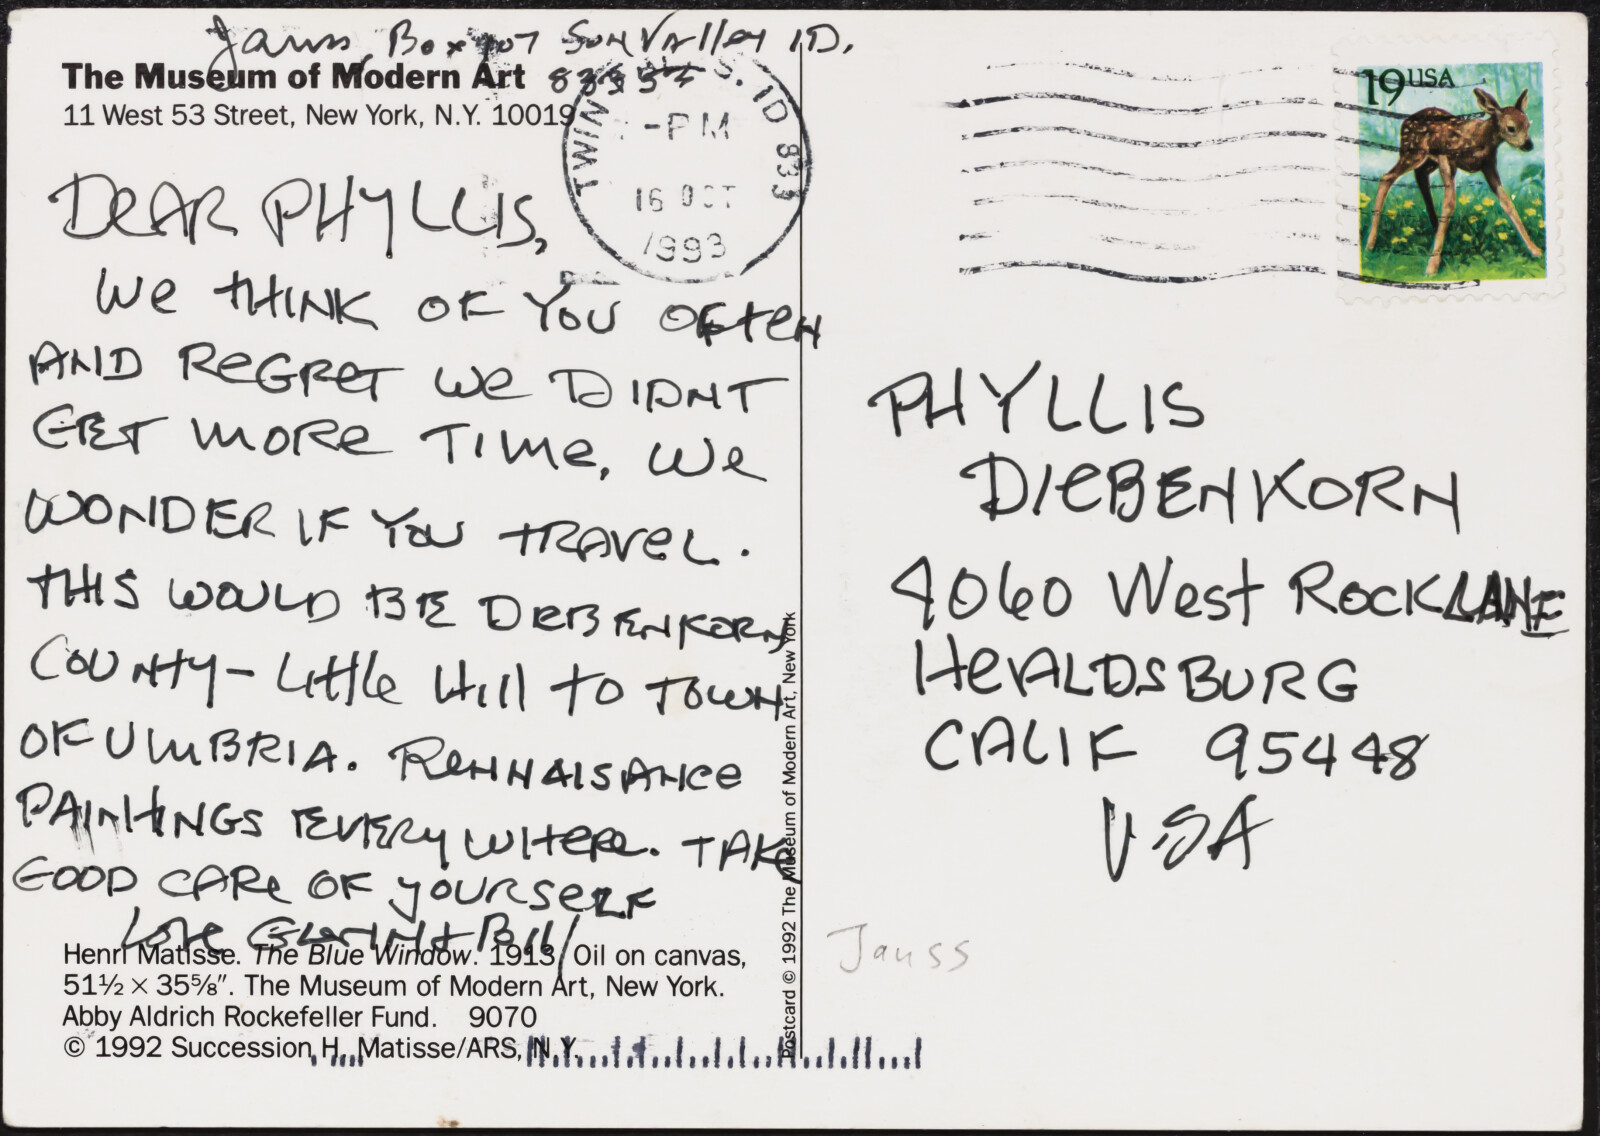 Jauss, Box 907 Sun Valley ID.
83353
The Museum of Modern Art
11 West 53 Street, New York, N.Y. 10019
TWIN S. ID 833
-PM
16 OCT
1993
19 USA
DEAR PHYLLIS,
We THINK OF YOU OFTEN
AND REGRET We DIDNT
GET MORE TIME, We
WONDER IF YOU TRAVEL.
THIS WOULD BE DIEBENKORN
COUNTY - Little Hill to TOWN
OF UMBRIA. RENNAISANCE
PAINTINGS EVERYWHERE. TAKE
GOOD CARE OF YOURSELF
Love Glorin + Bill
Henri Matisse. The Blue Window. 1913. Oil on canvas,
51½ × 35⅝". The Museum of Modern Art, New York.
Abby Aldrich Rockefeller Fund. 9070
© 1992 Succession H. Matisse/ARS, N.Y.
Postcard © 1992 The Museum of Modern Art, New York
PHYLLIS
DIEBENKORN
4060 West ROCK LANE
HEALDSBURG
CALIF 95448
USA
Jauss